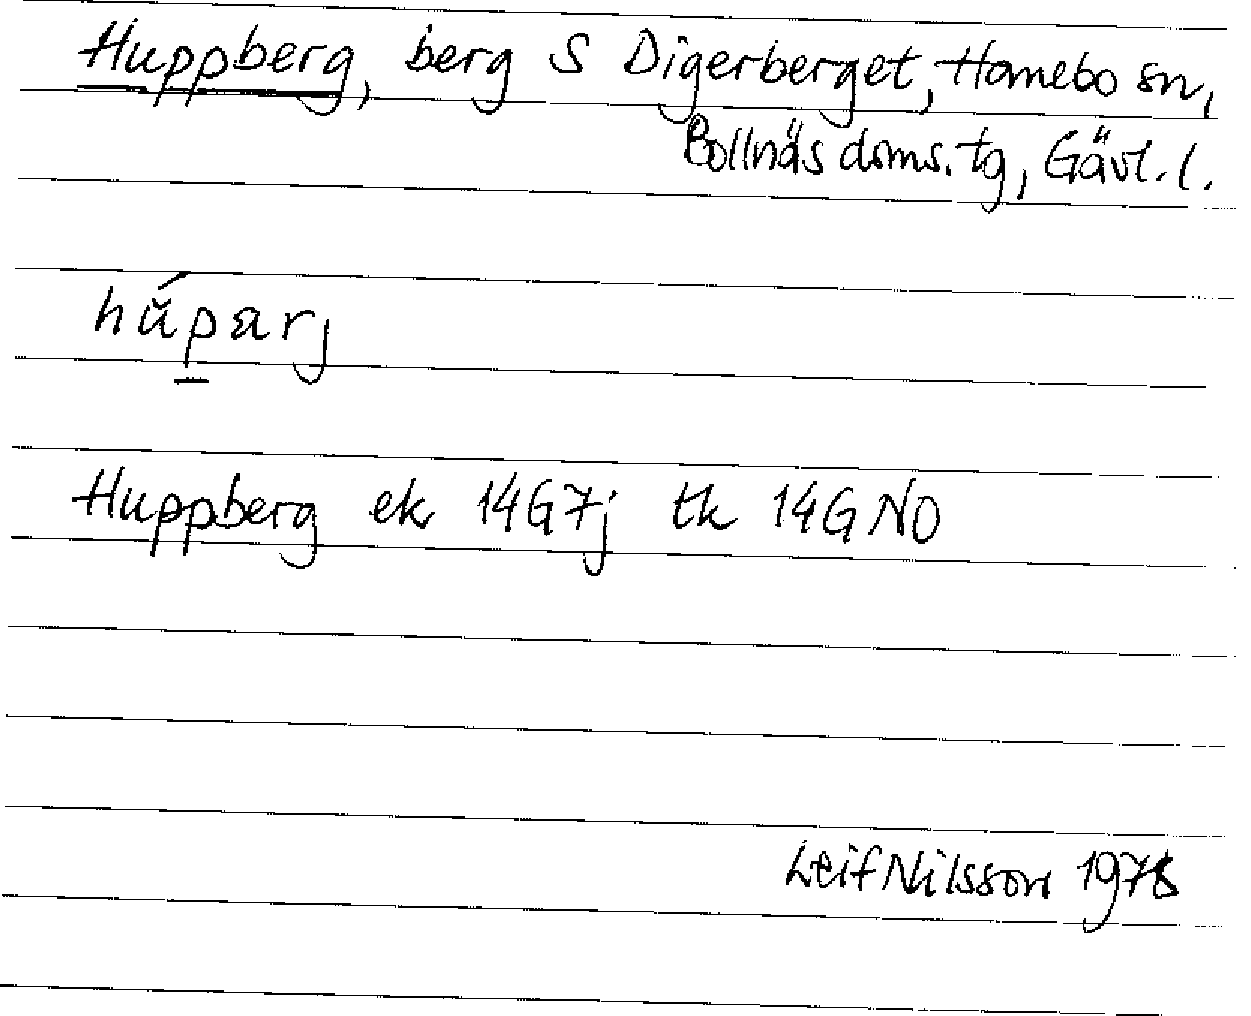 Huppberg, berg S Digerberget, Hamebo sn,
Bollnäs doms. tg, Gävl. l.
hŭ́p̱arj
Huppberg ek 14G7j tk 14G NO
Leif Nilsson